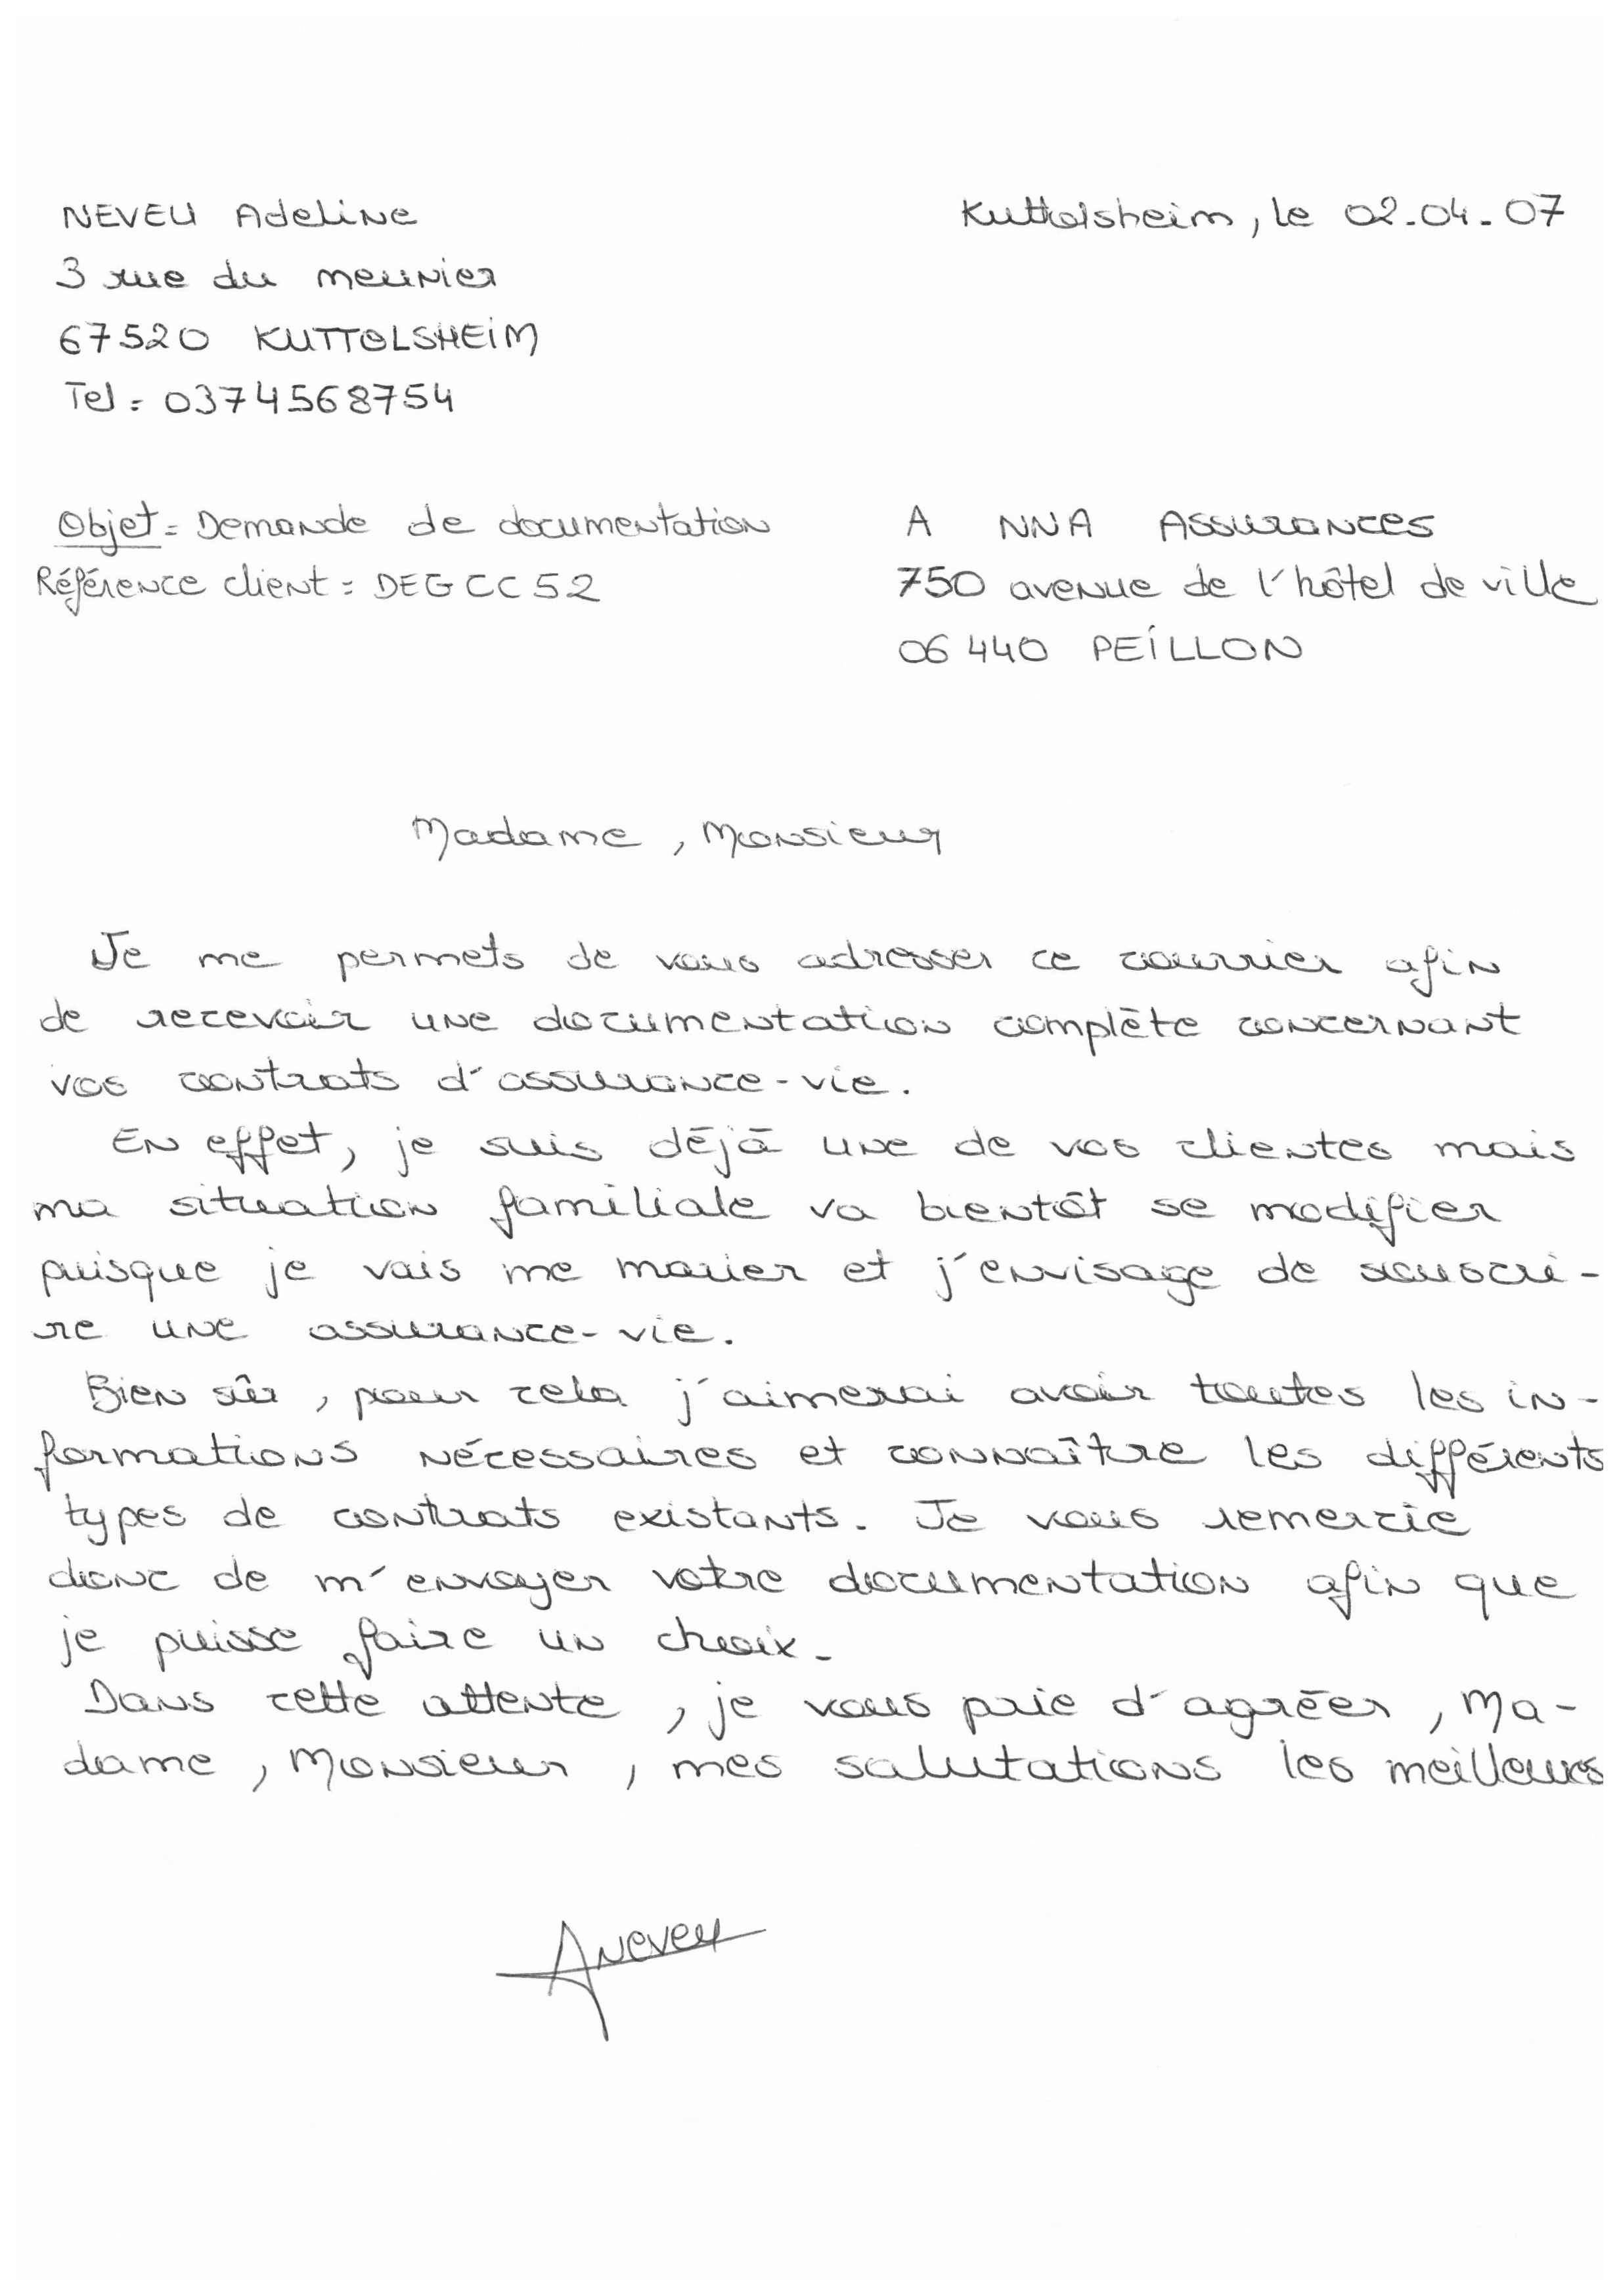 NEVEU Adeline
Kuttolsheim, le 02-04-07
3 rue du meunier
67520 KUTTOLSHEIM
Tel : 0374568754
Objet : Demande de documentation
Référence client : DEGCC52
A NNA Assurances
750 avenue de l'hôtel de ville
06440 PEILLON
Madame, Monsieur
Je me permets de vous adresser ce courrier afin
de recevoir une documentation complète concernant
vos contrats d'assurance-vie.
En effet, je suis déjà une de vos clientes mais
ma situation familiale va bientôt se modifier
puisque je vais me marier et j'envisage de souscri-
re une assurance-vie.
Bien sûr, pour cela j'aimerai avoir toutes les in-
formations nécessaires et connaître les différents
types de contrats existants. Je vous remercie
donc de m'envoyer votre documentation afin que
je puisse faire un choix.
Dans cette attente, je vous prie d'agréer, Ma-
dame, Monsieur, mes salutations les meilleures
ANeveu